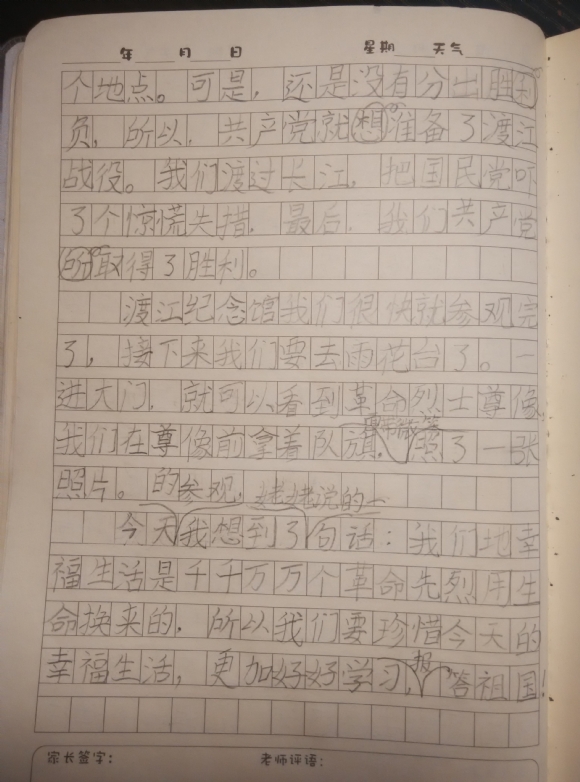 年 月 日 星期 天气
个地点。可是，还是没有分出胜利
负，所以，共产党就想准备了渡江
战役。我们渡过长江，把国民党吓
了个惊慌失措，最后，我们共产党
所取得了胜利。
渡江纪念馆我们很快就参观完
了，接下来我们要去雨花台了。一
进大门，就可以看到革命烈士尊像，
我们在尊像前拿着队旗，照了一张
照片。的参观，姥姥说的一
今天我想到了句话：我们地幸
福生活是千千万万个革命先烈用生
命换来的，所以我们要珍惜今天的
幸福生活，更加好好学习，报答祖国！
家长签字： 老师评语：